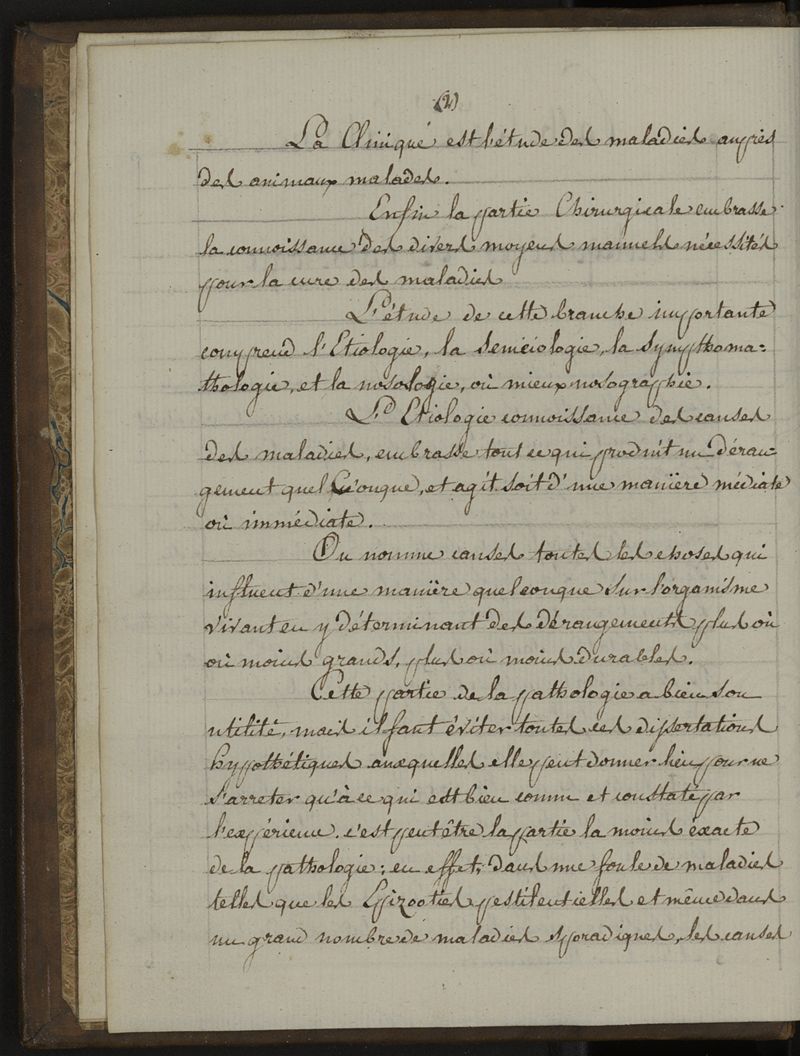 (2)
La Clinique est l'étude des maladies auprès
des animaux malades.
Enfin la partie Chirurgicale embrasse
la connoissance des divers moyens manuels nécessités
pour la cure des maladies
L'étude de cette branche importante
comprend l'Etiologie, la Semeiologie, la Sympthoma=
thologie, et la nosologie, où mieux nosographie.
L'Etiologie connoissance des causes
des maladies, embrasse tout ce qui produit un déran-
gement quelconque, et agit soit d'une manière médiate
où immédiate.
On nomme causes toutes les choses qui
influent d'une manière quelconque sur l'organisme
vivant en y déterminant des dérangements plus où
où moins grands, plus où moins durables.
Cette partie de la pathologie a bien son
utilité, mais il faut éviter toutes ces dissertations
hypothétiques auxquelles elle peut donner lieu pour ne
s'arreter qu'à ce qui est bien connu et constaté par
l'expérience. c'est peut être la partie la moins exacte
de la pathologie; en effet, dans une foule de maladies
telles que les Epizooties pestilentielles et même dans
un grand nombre de maladies sporadiques, les causes